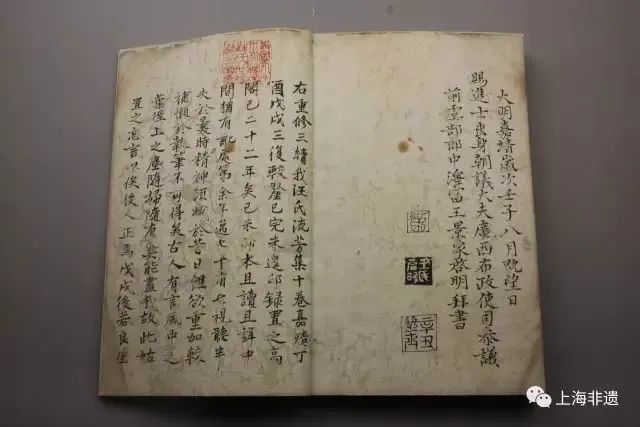 大明嘉靖歲次壬子八月既望日
賜進士出身朝議大夫廣西布政使司參議
前虞部郎中王景象啓明拜書
辛丑進士
右重修三續我汪氏流芳集十卷嘉靖丁
酉戊戌三復較已完未遑印錄置之高
閣已二十二年矣己未印本且讀且詳中
間猶有訛處第余年邁七十有七視聽半
失於曩時精神減於昔日雖欲重加較
補懶於執筆不可得矣古人有言風中之
葉徑上之塵隨掃隨有奚能盡哉故此姑
置之言以俟後人正焉戊戌後
上海非遗